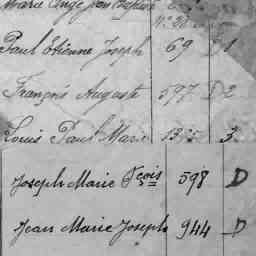 Marie Ange
Paul Etienne Joseph 69 D 1
François Auguste 597 D 2
Louis Paul Marie 1385 3
Joseph Marie Fçois 598 D
Jean Marie Joseph 944 D